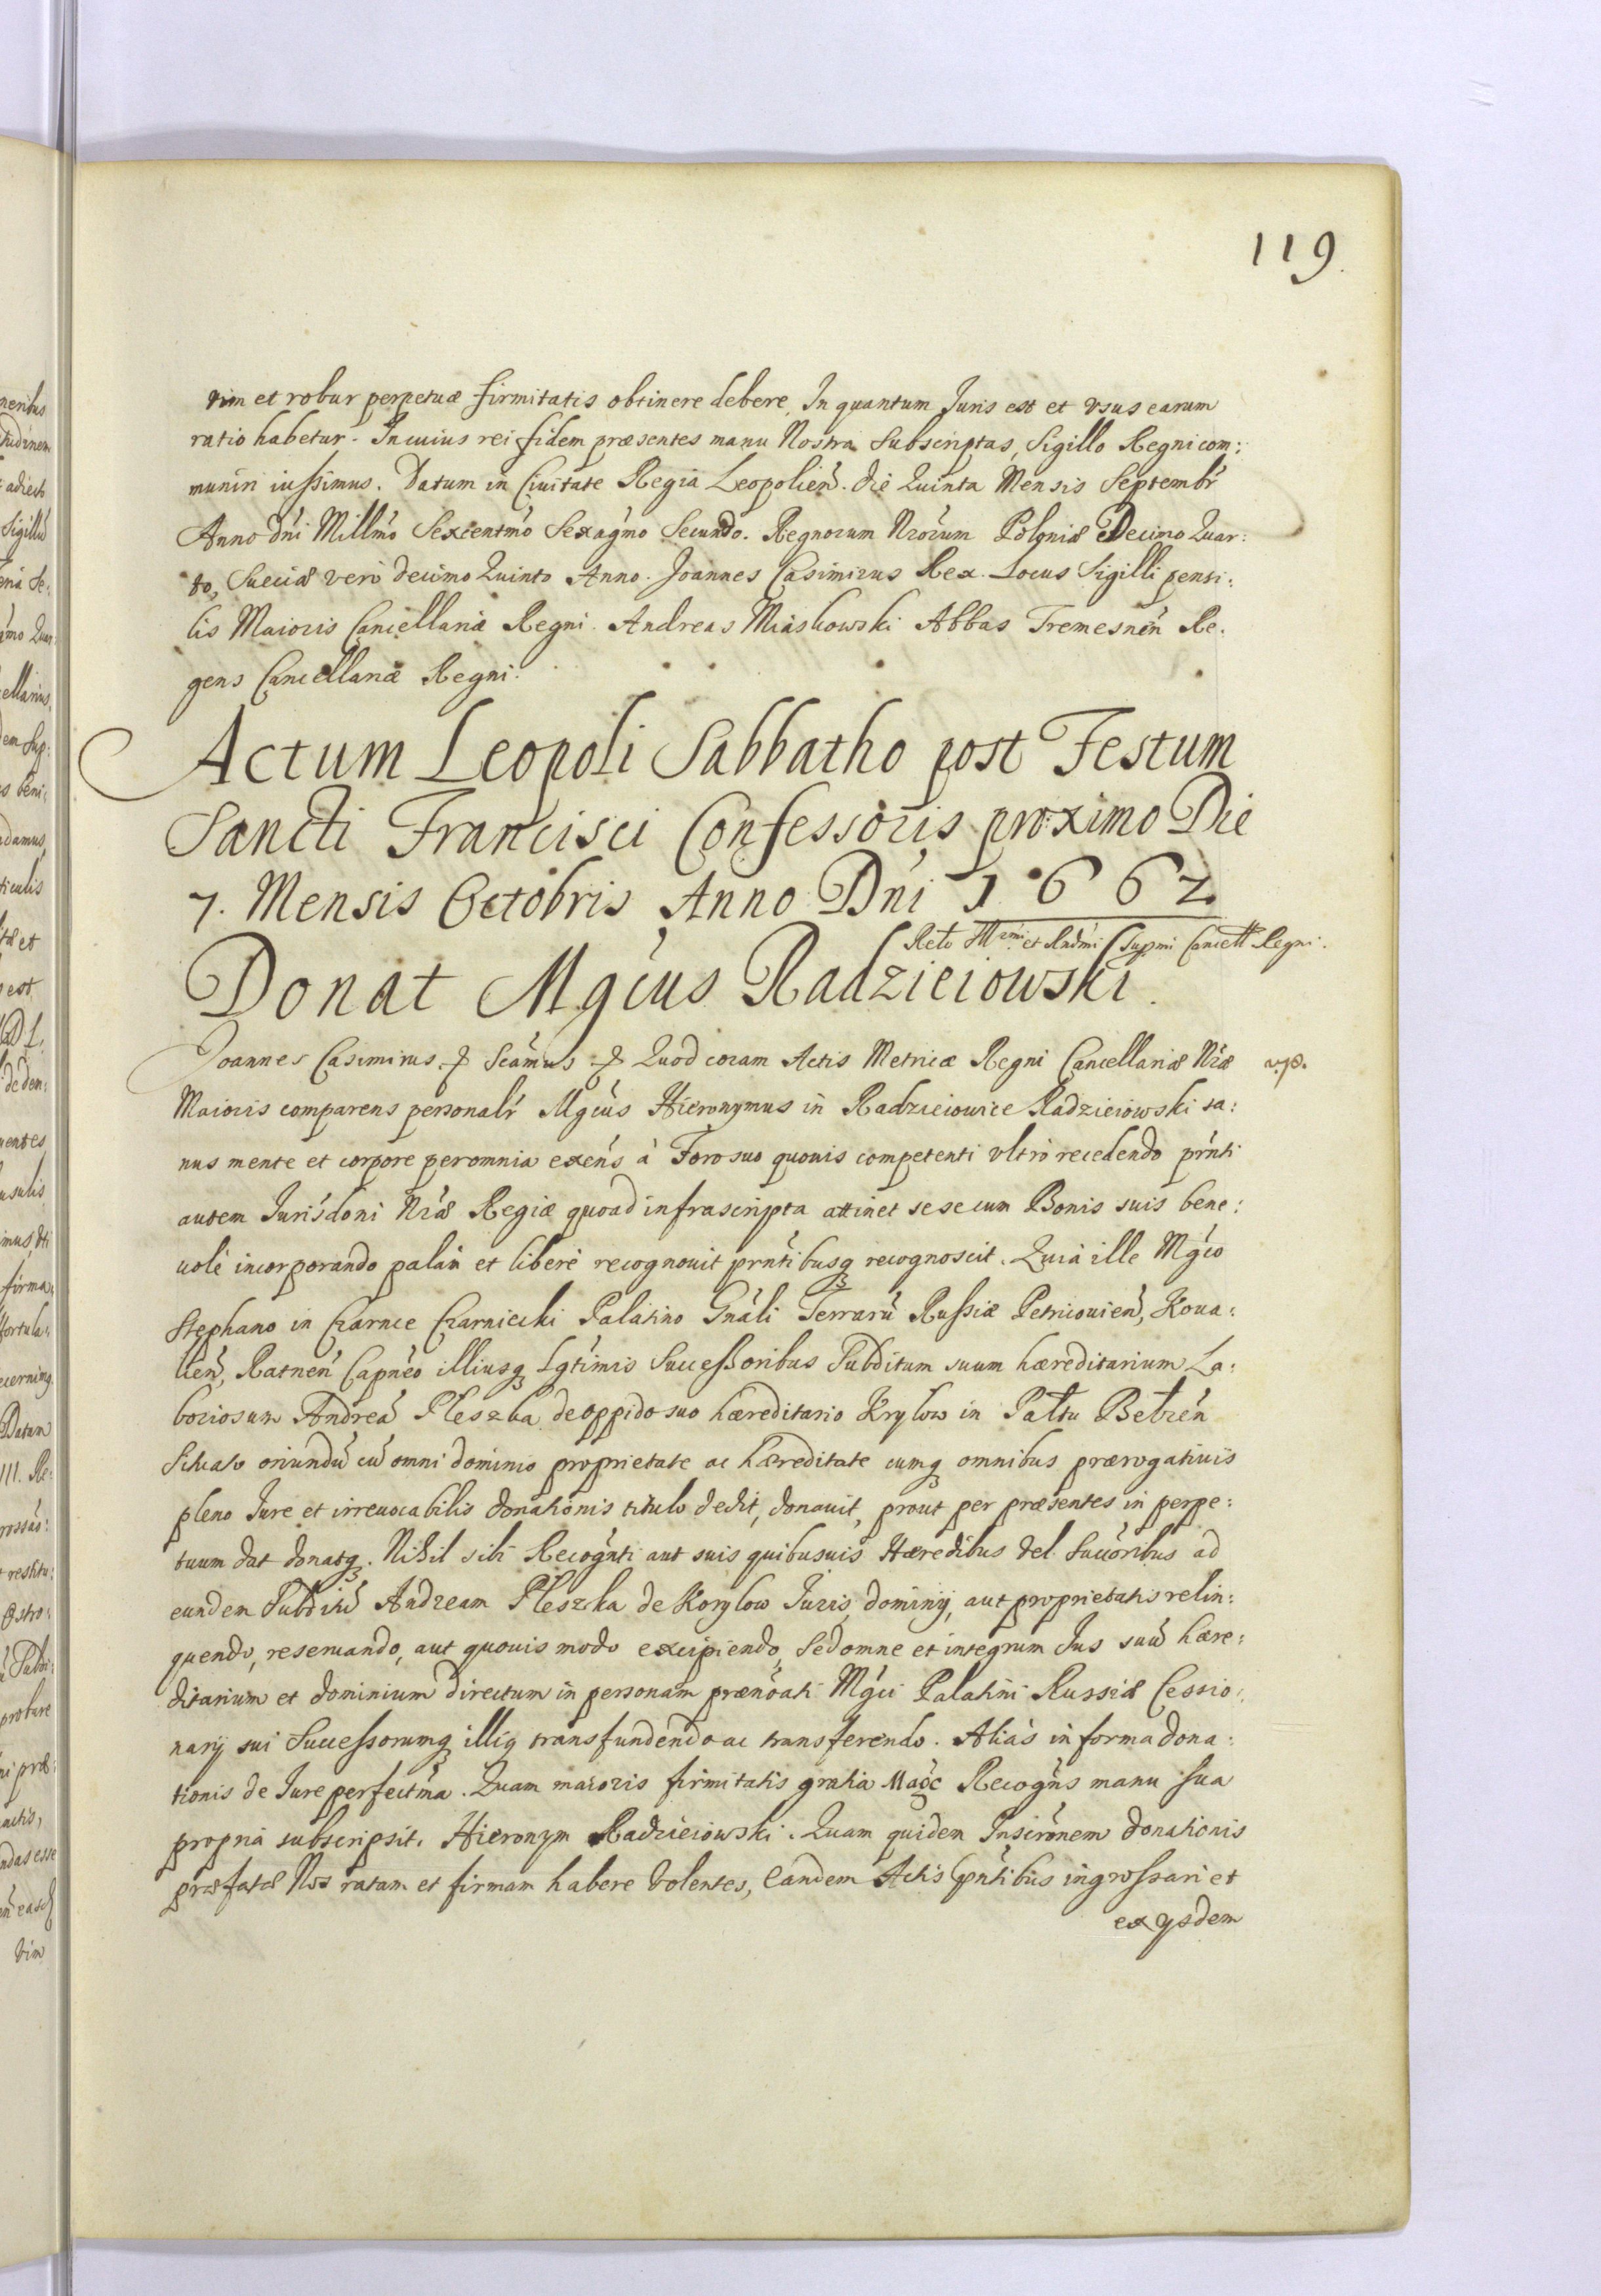 119.
vim et robur perpetuæ firmitatis obtinere debere, In quantum Juris est et vsus earum
ratio habetur. In cuius rei fidem præsentes manu Nostra Subscriptas, Sigillo Regni com:
muniri iussimus. Datum in Ciuitate Regia Leopolien̄. die Quinta Mensis Septembr̄
Anno dn̄i Millm̄o Sexcentm̄o Sexagm̄o Secundo. Regnorum Nror̄um Poloniæ Decimo Quar:
to, Sueciæ verò decimo Quinto Anno. Joannes Casimirus Rex. Locus Sigilli pensi:
lis Maioris Cancellariæ Regni. Andreas Miaskowski Abbas Tremesnen̄ Re.
gens Cancellariæ Regni.
Actum Leopoli Sabbatho post Festum
Sancti Francisci Confessoris proximo Die
7. Mensis Octobris Anno Dn̄i 1662
Relō Illrmi et Rndm̄i Supmi Cancell Regni.
Donat Mgcūs Radzieiowski.
Joannes Casimirus. & Scām̄us & Quod coram Actis Metricæ Regni Cancellariæ Nrǣ
Maioris comparens personalr̄ Mgcūs Hieronymus in Radzieiowice Radzieiowski sa:
nus mente et corpore per omnia exen̄s à Foro suo quouis competenti vltrò recedendo prn̄ti
autem Jurisdōni Nrǣ Regiæ quoad infrascripta attinet sese cum Bonis suis bene:
uolè incorporando palàm et liberè recognouit prn̄tibusq recognoscit. Quia ille Mgc̄o
Stephano in Czarnce Czarniecki Palatino Gnāli Terrarū Russiæ Petricouien̄, Koua:
lien̄, Ratnen̄ Capnēo illiusq Lgt̄imis Successoribus Subditum suum hæreditarium La:
boriosum Andreā Pleszka de oppido suo hæreditario Krylow in Pałtu Bełzen̄
Situato oriundū cū omni dominio proprietate ac hæreditate cumq omnibus prærogatiuis
pleno Jure et irreuocabilis donationis titulo dedit, donauit, prout per præsentes in perpe:
tuum dat donatq. Nihil sibi Recogn̄ti aut suis quibusuis Hæredibus vel Succōribus ad
eundem Subditū Andream Pleszka de Korylow Juris, dominij, aut proprietatis relin:
quendo, reseruando, aut quouis modo excipiendo, Sed omne et integrum Jus suū hære:
ditarium et dominium directum in personam prænōati Mgc̄i Palatini Russiæ Cessio:
narij sui Successorumq illiq transfundendo ac transferendo. Aliàs in forma dona:
tionis de Jure perfectm̄a. Quam maioris firmitatis gratia Recogn̄s manu sua
propria subscripsit. Hieronym Radzieiowski. Quam quidem Inscrōnem donationis
præfatæ Nos ratam et firmam habere Volentes, Eandem Actis prn̄tibus ingrossari et
ex ijsdem